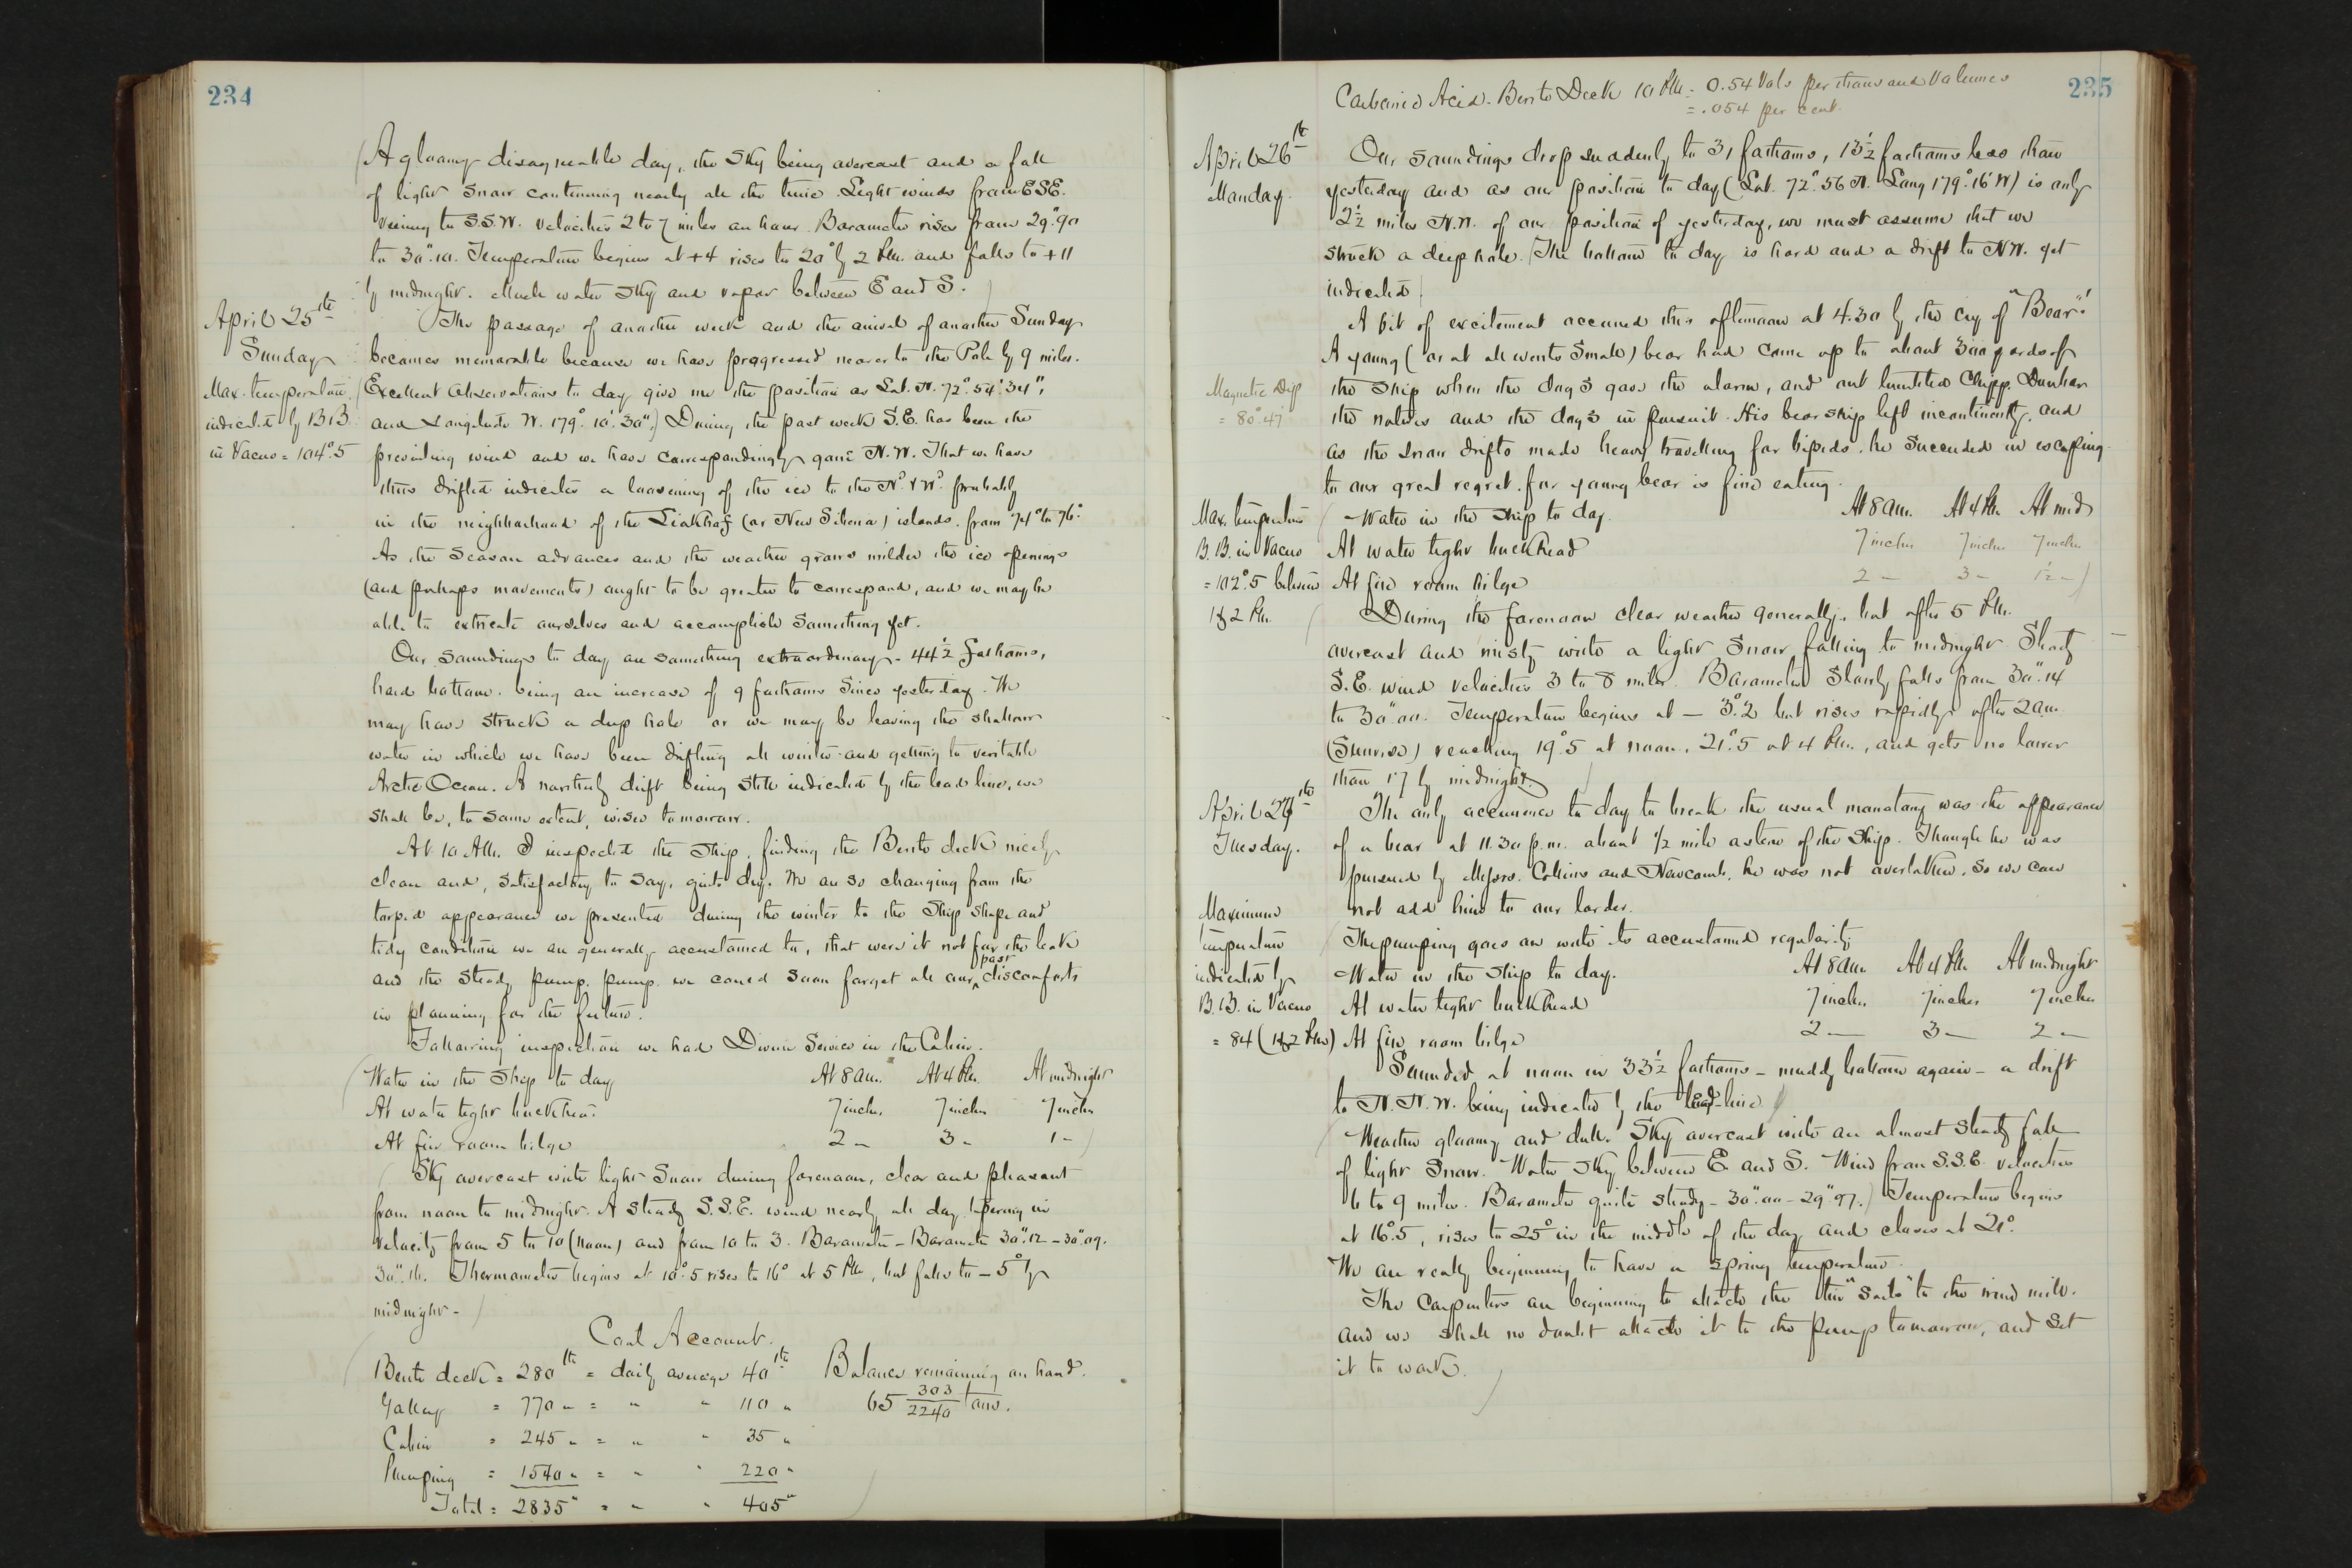 234
A gloomy disagreeable day, the sky being overcast and a fall
of light snow continuing nearly all the time. Light winds from ESE.
veering to S.S.W. velocities 2 to 7 miles an hour. Barometer rises from 29".90
to 30".10. Temperature begins at +4 rises to 20° by 2 P.M. and falls to +11
by midnight. Much water sky and vapor between E and S.
April 25th
Sunday
The passage of another week and the arrival of another Sunday
becomes memorable because we have progressed nearer to the Pole by 9 miles.
Max. temperature
indicated by B.B.
in Vacuo = 104°.5
Excellent observations to day give me the position as Lat. N. 72° 54' 34",
and Longitude W. 179° 10' 30". During the past week S.E. has been the
prevailing wind and we have correspondingly gone N.W. That we have
thus drifted indicates a loosening of the ice to the N°. & W°. probably
in the neighborhood of the Liakhof (or New Siberia) islands, from 74° to 76°.
As the season advances and the weather grows milder the ice openings
(and perhaps movements) ought to be greater to correspond, and we may be
able to extricate ourselves and accomplish something yet.
Our soundings to day are something extraordinary - 44½ fathoms,
hard bottom. being an increase of 9 fathoms since yesterday. We
may have struck a deep hole or we may be leaving the shallow
water in which we have been drifting all winter and getting to veritable
Arctic Ocean. A northerly drift being still indicated by the lead line, we
shall be, to some extent, wiser tomorrow.
At 10 A.M. I inspected the ship, finding the Berth deck nicely
clean and, satisfactory to say, quite dry. We are so changing from the
torpid appearance we presented during the winter to the ship shape and
tidy condition we are generally accustomed to, that were it not for the leak
and the steady pump, pump we could soon forget all our past discomforts
in planning for the future.
Following inspection we had Divine Service in the Cabin.
Water in the Ship to day At 8 a.m. At 4 P.M. At midnight
At water tight bulkhead. 7 inches 7 inches 7 inches
At fire room bilge 2 " 3 " 1 "
Sky overcast with light snow during forenoon, clear and pleasant
from noon to midnight. A steady S.S.E. wind nearly all day tapering in
velocity from 5 to 10 (noon) and from 10 to 3. Barometer - Barometer 30".12 - 30".09.
30".16. Thermometer begins at 10°.5 rises to 16° at 5 P.M., but falls to -5° by
midnight -
Coal Account.
Berth deck = 280 lb = daily average 40 lb Balance remaining on hand.
Galley = 770 " = " " 110 " 65 303/2240 tons.
Cabin = 245 " = " " 35 "
Pumping = 1540 " = " " 220 "
Total = 2835 " = " " 405 "
235
Carbonic Acid - Berth Deck 10 P.M. = 0.54 Vols per thousand Volumes
= .054 per cent.
April 26th
Monday.
Our soundings drop suddenly to 31 fathoms, 13½ fathoms less than
yesterday and as our position to day (Lat. 72° 56 N. Long 179° 16' W) is only
2½ miles N.W. of our position of yesterday, we must assume that we
struck a deep hole. The bottom to day is hard and a drift to NW. yet
indicated.
A bit of excitement occurred this afternoon at 4.30 by the cry of "Bear"!
A young (or at all events small) bear had come up to about 300 yards of
Magnetic Dip
= 80° 47'
the ship when the dogs gave the alarm, and out tumbled Chipp, Dunbar
the natives and the dogs in pursuit. His bearship left incontinently, and
as the snow drifts made heavy travelling for bipeds, he succeeded in escaping
to our great regret. for young bear is fine eating.
Max. temperature
B.B. in Vacuo
= 102°.5 between
1 & 2 P.M.
Water in the ship to day. At 8 a.m. At 4 P.M. At mid
At water tight bulkhead 7 inches 7 inches 7 inches
At fire room bilge 2 " 3 " 1½ "
During the forenoon clear weather generally, but after 5 P.M.
overcast and misty with a light snow falling to midnight. Steady
S.E. wind velocities 3 to 8 miles. Barometer slowly falls from 30".14
to 30".00. Temperature begins at - 3°.2 but rises rapidly after 2 a.m.
(Sunrise) reaching 19°.5 at noon, 21°.5 at 4 P.M., and gets no lower
than 17 by midnight.
April 27th
Tuesday.
The only occurrence to day to break the usual monotony was the appearance
of a bear at 11.30 p.m. about 1/2 mile astern of the ship. Though he was
pursued by Messrs. Collins and Newcomb, he was not overtaken, so we can
not add him to our larder.
Maximum
temperature
indicated by
B.B. in Vacuo
= 84 (1 & 2 P.M.)
The pumping goes on with its accustomed regularity
Water in the ship to day. At 8 a.m. At 4 P.M. At midnight
At water tight bulkhead 7 inches 7 inches 7 inches
At fire room bilge 2 — 3 — 2 —
Sounded at noon in 33½ fathoms - muddy bottom again - a drift
to N.N.W. being indicated by the lead-line
Weather gloomy and dull. Sky overcast with an almost steady fall
of light snow. Water sky between E. and S. Wind from S.S.E. velocities
6 to 9 miles. Barometer quite steady - 30".00 - 29".97. Temperature begins
at 16°.5, rises to 25° in the middle of the day and closes at 21°.
We are really beginning to have a spring temperature.
The carpenters are beginning to attach the tin "sails" to the wind mill.
and we shall no doubt attach it to the pump tomorrow, and set
it to work.